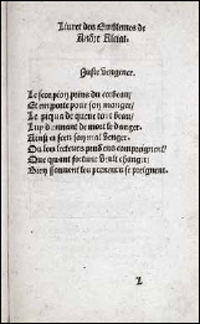 Livret des Emblemes de
Andre Alciat.
Juste vengence.
Le scorpion prins du corbeau/
Et emporte pour son manger/
Le piqua de queue tout beau/
Luy donnant de mort le danger.
Ainsi a sceu son mal venger.
Ou les lecteurs prudens comprengnent/
Que quant fortune veult changer/
Bien souvent les preneurs se preignent.